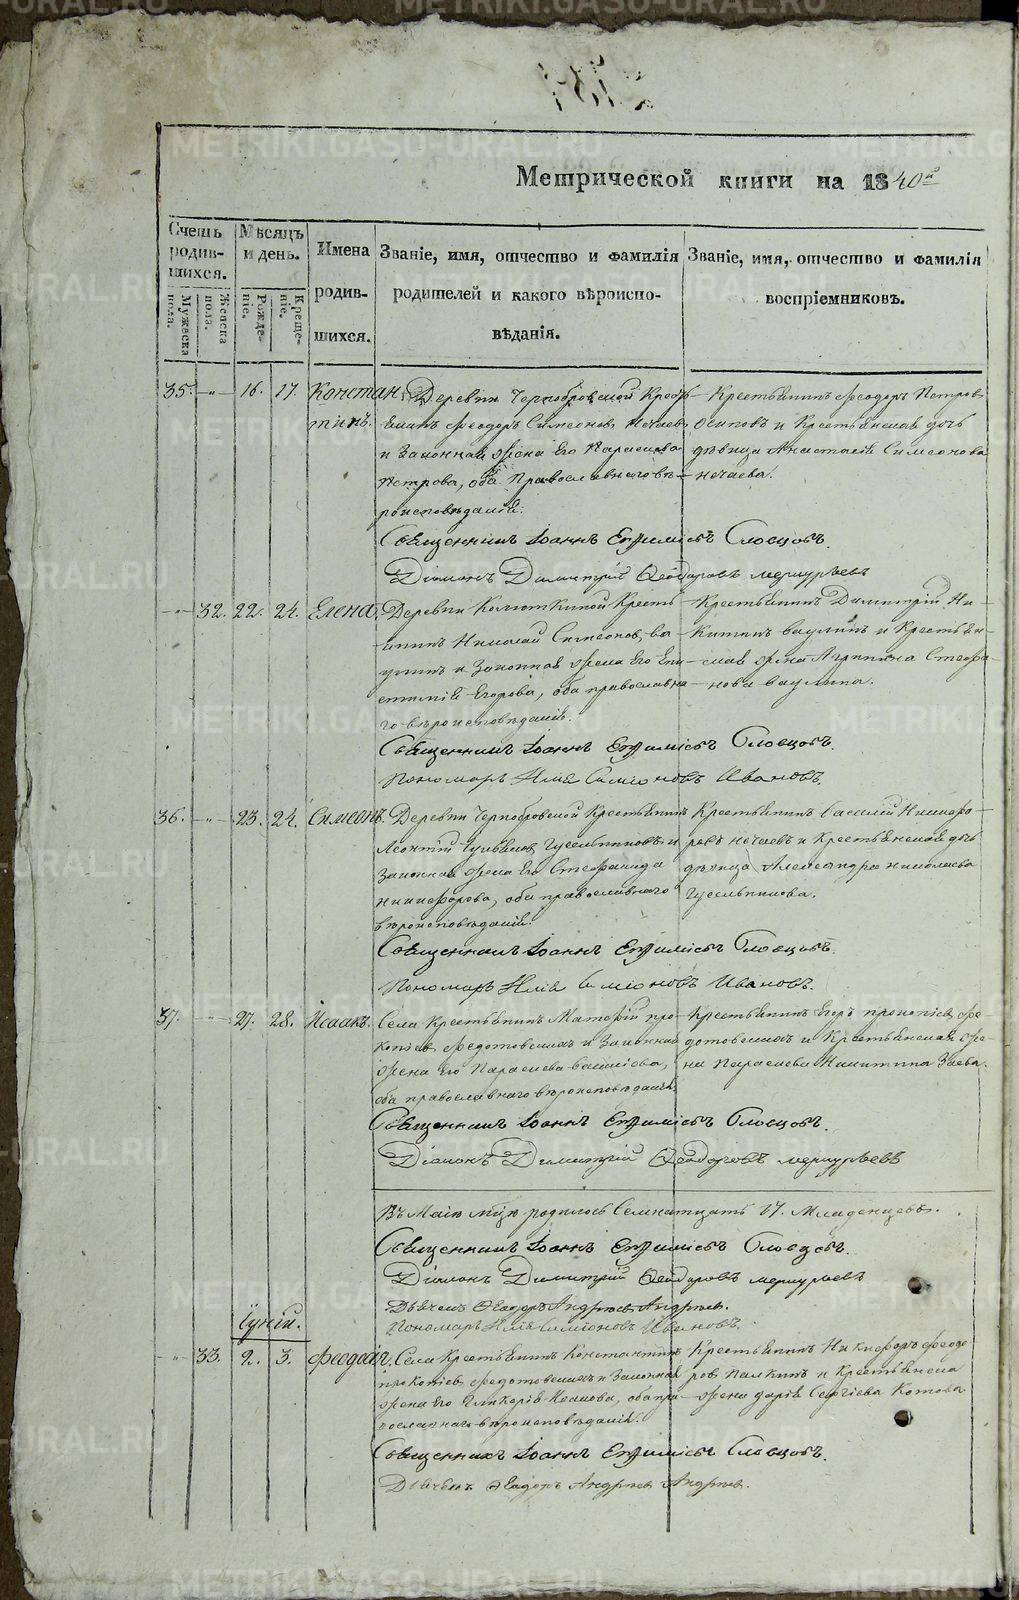 METRIKI.GASO-URAL.RU
Метрической книги на 1840й
Счетъ родив-шихся.
Мужеска пола.
Женска пола.
Мѣсяцъ и день.
Рожде-ніе.
Креще-ніе.
Имена родив-шихся.
Званіе, имя, отчество и фамилія
родителей и какого вѣроиспо-
вѣданія.
Званіе, имя, отчество и фамилія
воспріемниковъ.
35. -"- 16. 17. Констан-
тинъ.
Деревни Чернобровской Кресть-
янинъ Ѳеодоръ Симеоновъ Нечаевъ
и Законная жена Его Параскева
Петрова, оба Православнаго вѣ-
роисповѣданія.
Крестьянинъ Ѳеодоръ Петровъ
Осиповъ и Крестьянская дочь
дѣвица Анастасія Симеонова
Нечаева.
Священникъ Іоаннъ Словцовъ.
Діаконъ Димитрій Ѳеодоровъ
-"- 32. 22. 24. Елена.
Деревни Кресть-
янинъ Николай Симеоновъ Ва-
улинъ и Законная жена Его
Егорова, оба православна-
го вѣроисповѣданія.
Крестьянинъ Димитрій Ни-
китинъ Ваулинъ и Крестьян-
ская жена Агрипина Стефа-
нова Ваулина.
Священникъ Іоаннъ Словцовъ.
Пономарь Илія Симіоновъ Ивановъ.
36. -"- 23. 24. Симеонъ.
Деревни Чернобровской Крестьянинъ
Леонтій Гусельниковъ и
Законная жена Его Стефанида
Никифорова, оба православнаго
вѣроисповѣданія.
Крестьянинъ Василій Никифо-
ровъ Нечаевъ и Крестьянская дочь
дѣвица Александра Николаева
Гусельникова.
Священникъ Іоаннъ Словцовъ.
Пономарь Илія Симіоновъ Ивановъ.
37. -"- 27. 28. Исаакъ.
Села Крестьянинъ Про-
копіевъ Ѳедотовскихъ и Законная
жена Его Параскева
оба православнаго вѣроисповѣданія.
Крестьянинъ Егоръ Прокопіевъ Ѳе-
дотовскихъ и Крестьянская же-
на Параскева Никитина Заева.
Священникъ Іоаннъ Словцовъ.
Діаконъ Димитрій Ѳеодоровъ
Въ Маіѣ мцѣ родилось Семнатцать 17. Младенцевъ.
Священникъ Іоаннъ Словцовъ.
Діаконъ Димитрій Ѳеодоровъ
Дьячекъ Ѳеодоръ Андреевъ Андреевъ.
Пономарь Илія Симіоновъ Ивановъ.
Іуній.
-"- 33. 2. 3. Ѳеодосія.
Села Крестьянинъ Константинъ
Прокопіевъ Ѳедотовскихъ и Законная
жена Его Гликерія Исакова, оба пра-
вославнаго вѣроисповѣданія.
Крестьянинъ Никифоръ Ѳеодо-
ровъ Палкинъ и Крестьянска
жена Дарія Сергіева Котова
Священникъ Іоаннъ Словцовъ.
Дьячекъ Ѳеодоръ Андреевъ Андреевъ.